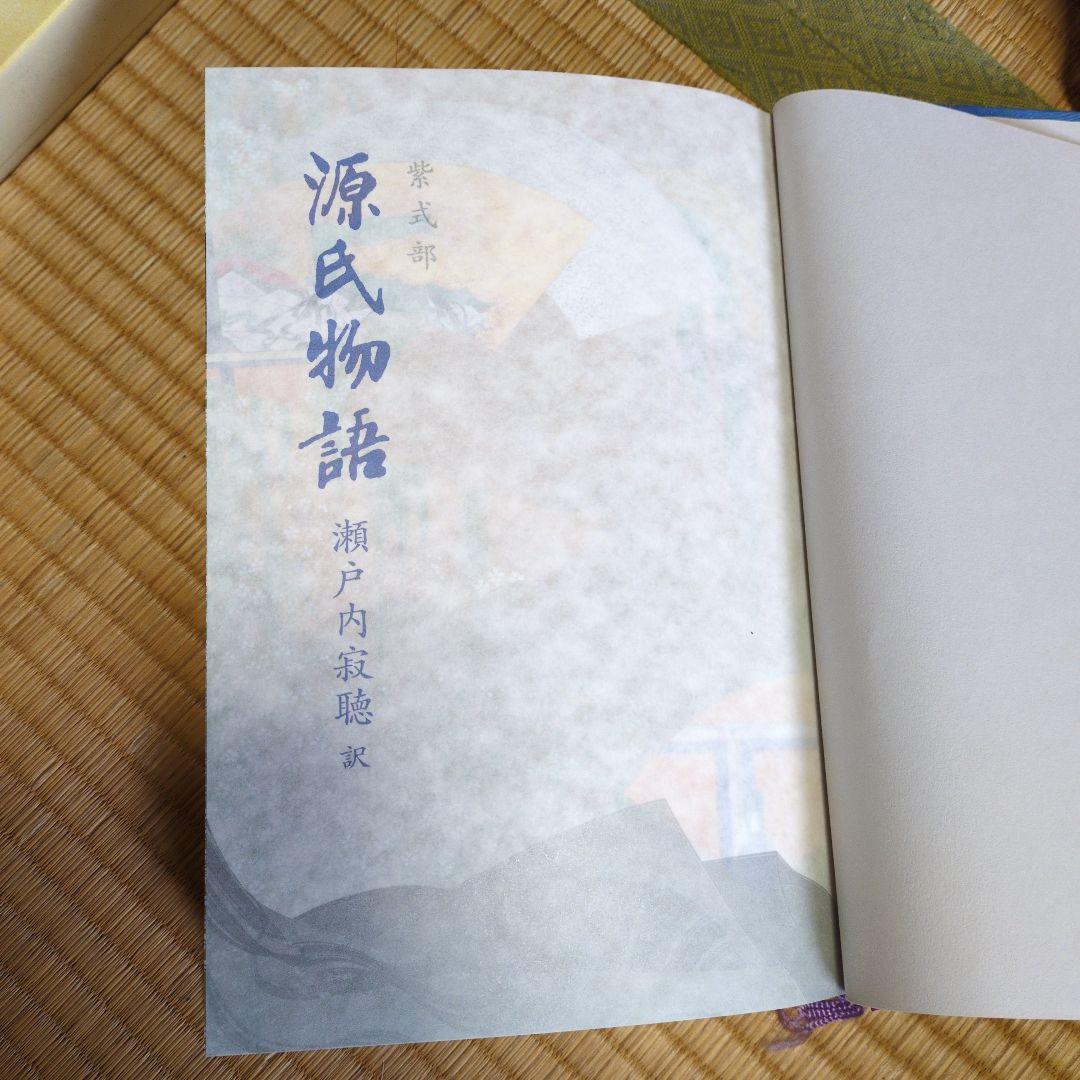 紫式部
源氏物語
瀬戸内寂聴 訳